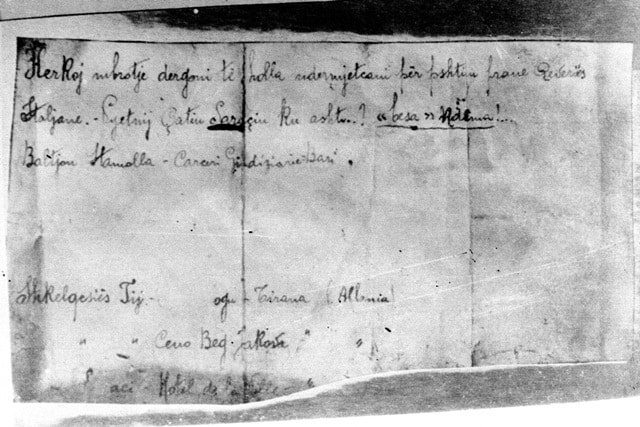 Herkoj mbrotje dergoni të holla ndermjetcani për pshtim prane Qeveriës
Italjane. - Pyetnij Çatin Saraçin ku asht...? « besa » Ndëma!...
Baltjon Stamolla - Carceri Giudiziarie - Bari.
Shkelqesiës Tij - ogu - Tirana (Albania)
" " Ceno Beg " "
aci - Hotel de "